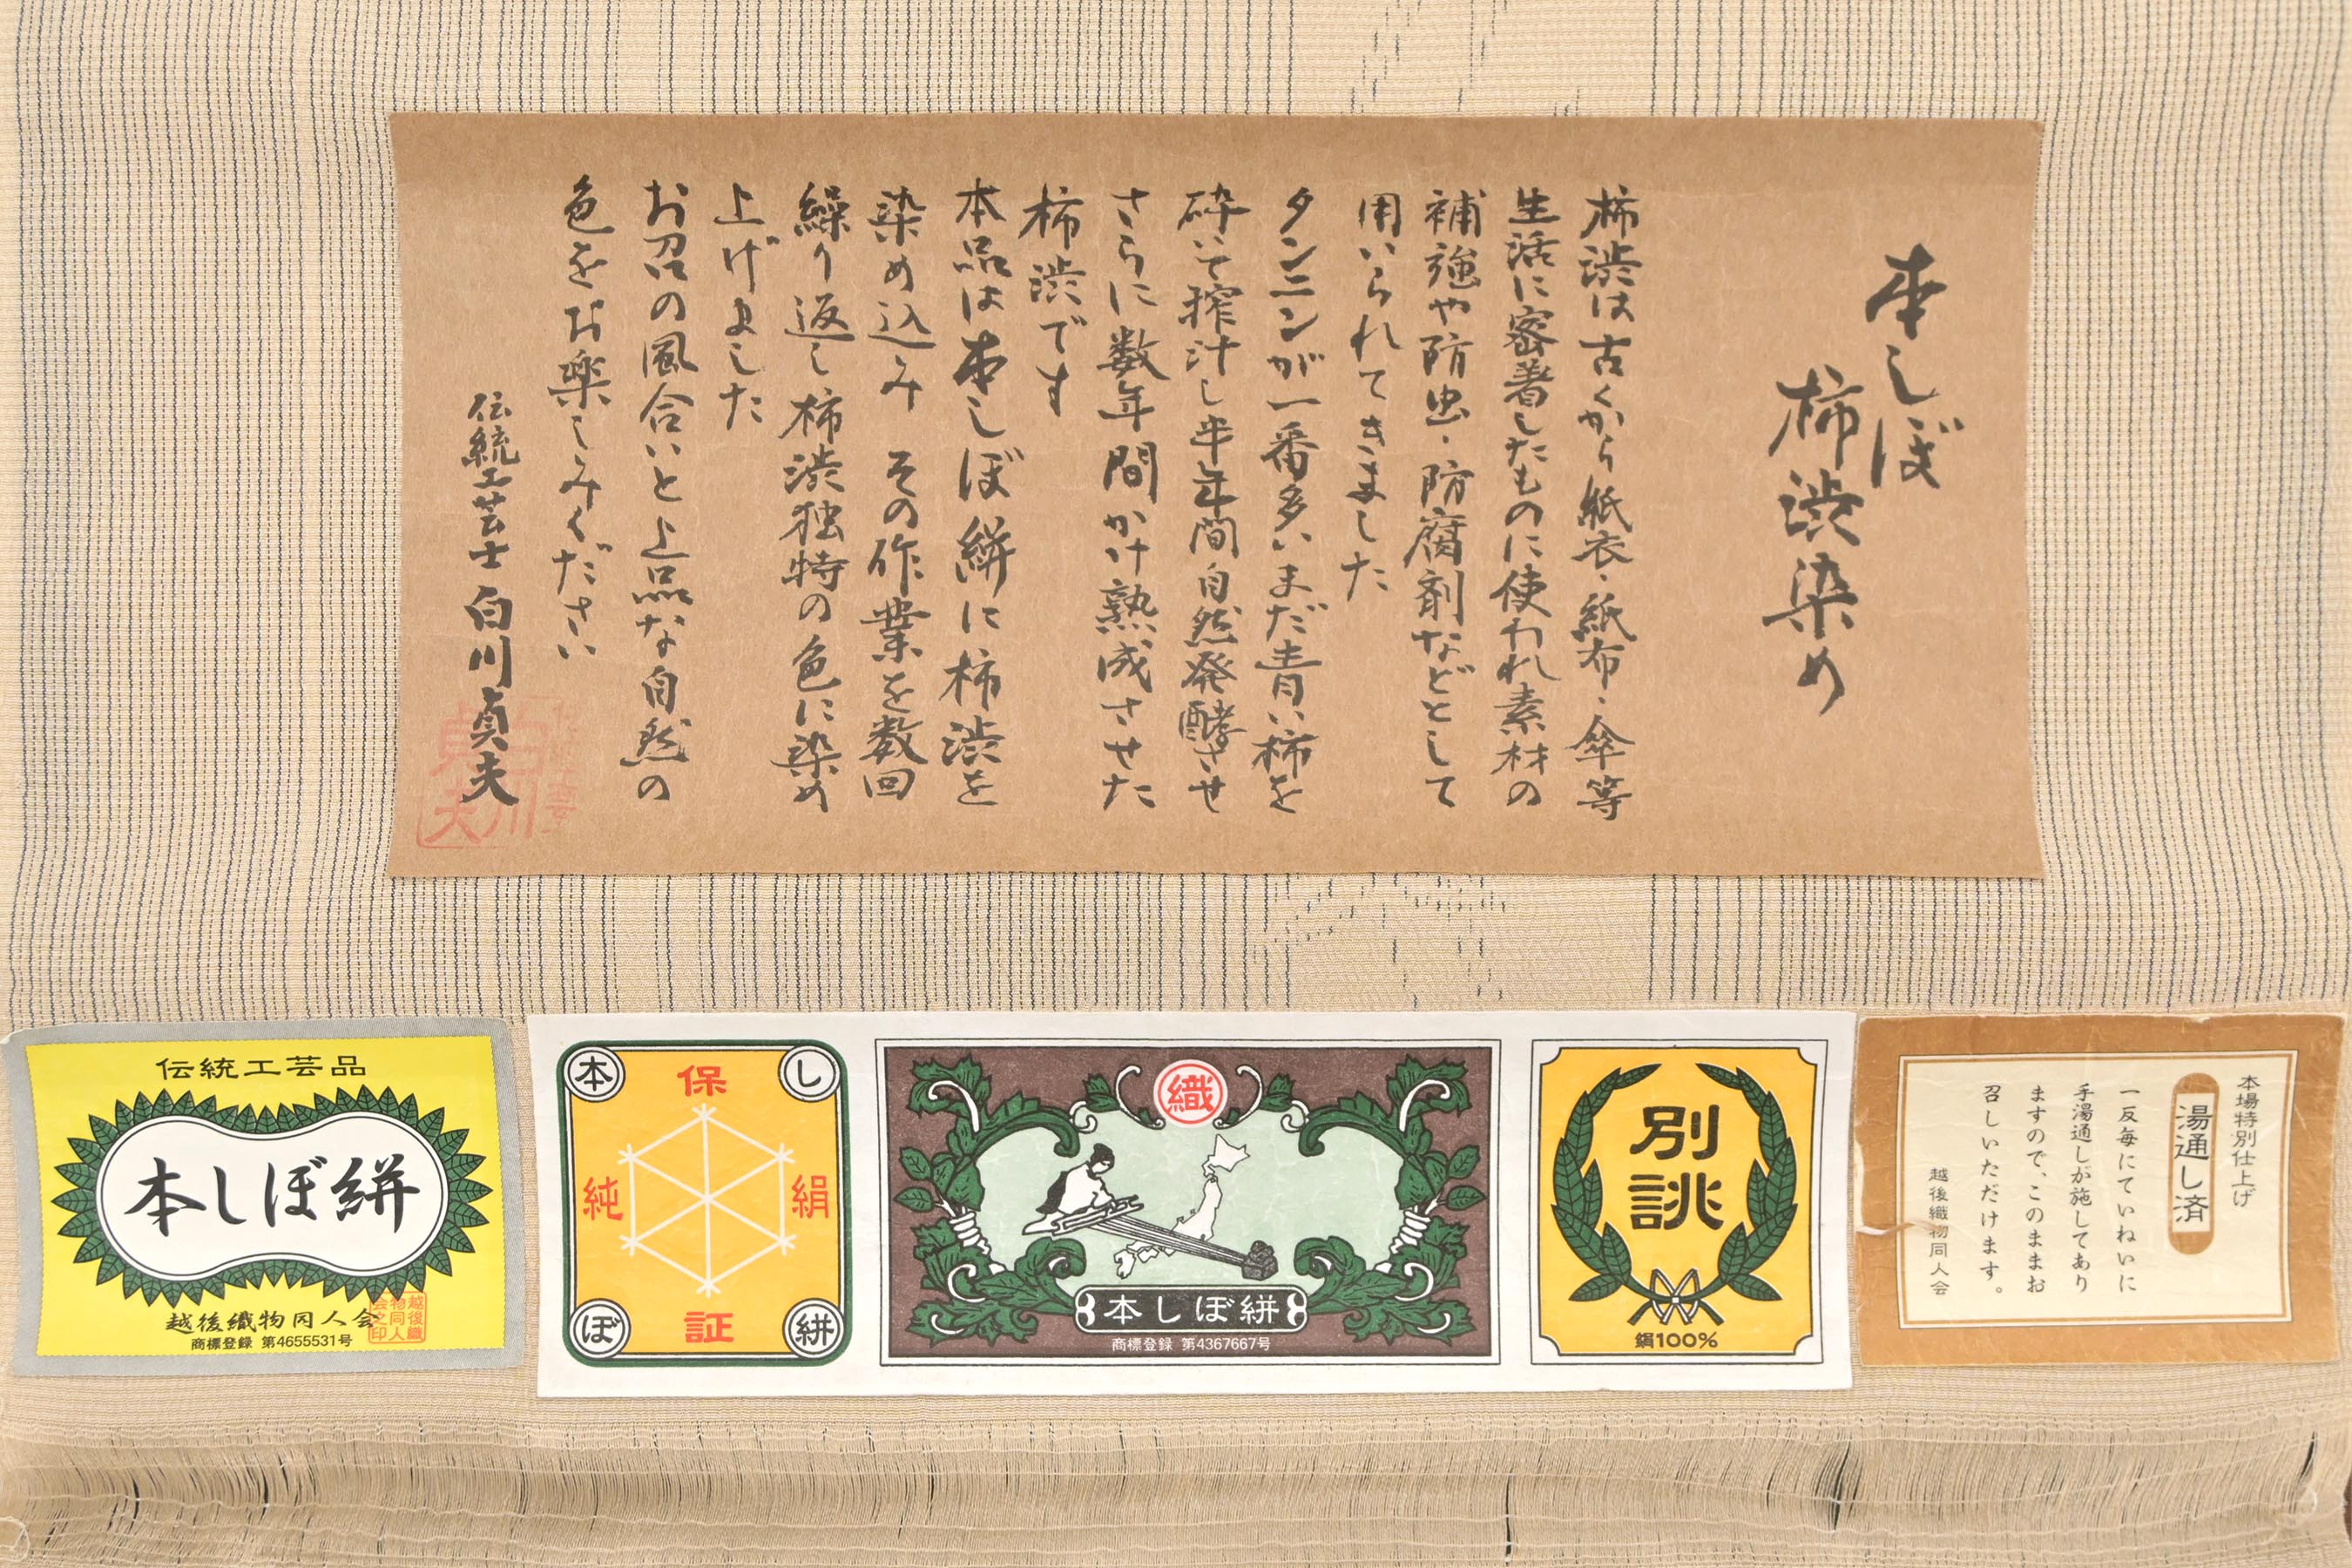 本しぼ
柿渋染め
柿渋は古くから紙衣・紙布・傘等
生活に密着したものに使われ素材の
補強や防虫・防腐剤などとして
用いられてきました
タンニンが一番多いまだ青い柿を
砕いて搾汁し半年間自然発酵させ
さらに数年間かけ熟成させた
柿渋です
本品は本しぼ絣に柿渋を
染め込み その作業を数回
繰り返し柿渋独特の色に染め
上げました
お召の風合いと上品な自然の
色をお楽しみください
伝統工芸士 白川貞夫
伝統工芸品
本しぼ絣
越後織物同人会
越後織物同人会之印
商標登録 第4655531号
本
し
ぼ
絣
保
証
純
絹
織
本しぼ絣
商標登録 第4367667号
別
誂
絹100%
本場特別仕上げ
湯通し済
一反毎にていねいに
手湯通しが施してあり
ますので、このままお
召しいただけます。
越後織物同人会